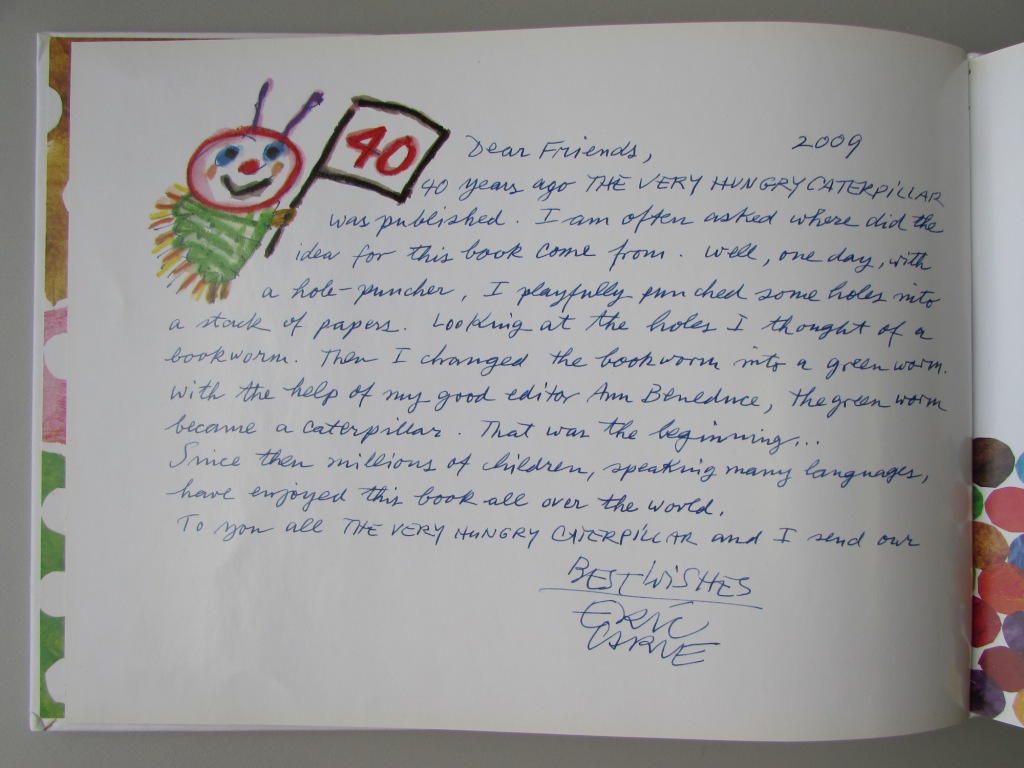 40
Dear Friends, 2009
40 years ago THE VERY HUNGRY CATERPILLAR
was published. I am often asked where did the
idea for this book come from. Well, one day, with
a hole-puncher, I playfully punched some holes into
a stack of papers. Looking at the holes I thought of a
bookworm. Then I changed the bookworm into a green worm.
With the help of my good editor Ann Beneduce, the green worm
became a caterpillar. That was the beginning...
Since then millions of children, speaking many languages,
have enjoyed this book all over the world.
To you all THE VERY HUNGRY CATERPILLAR and I send our
BEST WISHES
ERIC
CARLE